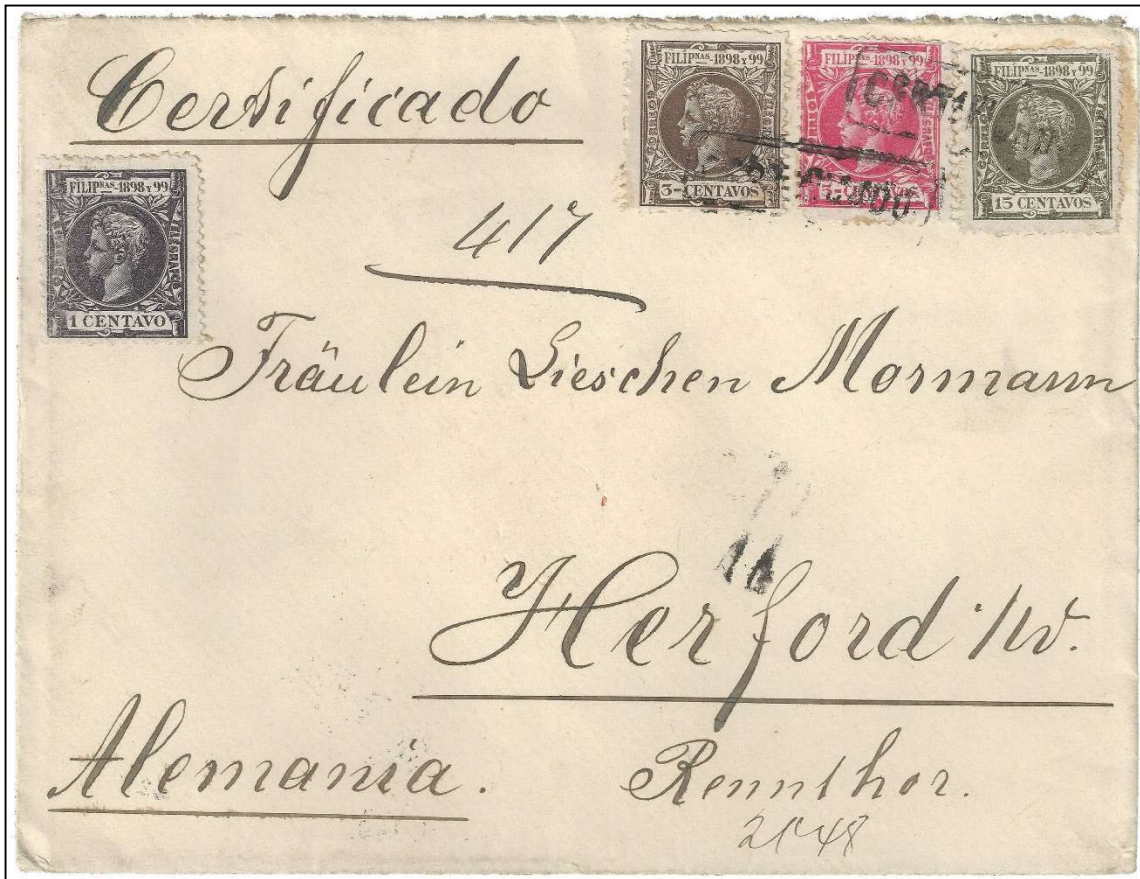 Certificado
FILIPNAS-1898 Y 99
CORREOS
TELEGRAFOS
3-CENTAVOS
FILIPNAS-1898 Y 99
5-CENTAVOS
FILIPNAS-1898 Y 99
15 CENTAVOS
FILIPNAS-1898 Y 99
1 CENTAVO
417
Fräulein Lieschen Mormann
Herford /W.
Alemania. Rennthor.